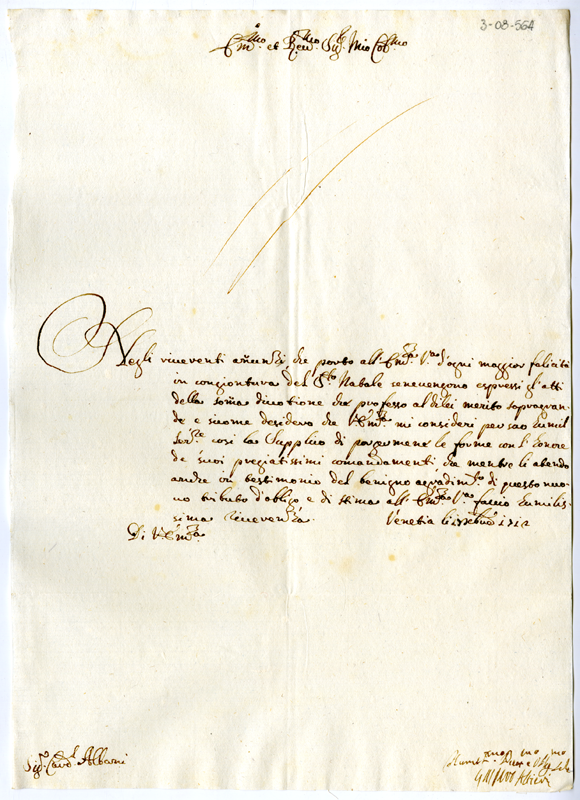 3-08-564
Em.mo et R.mo Sig.r Mio Col.mo
Negli riverenti annunzi che porto all'Em.za V.ra d'ogni maggior felicità
in congiontura del S.to Natale vengono espressi gli atti
della somma divotione che professo al di lei merito sopragran-
de e sicome desidero che l'Em.za mi consideri per suo humil
Ser.re così la supplico di porgermene le forme con l'honore
de suoi pregiatissimi comandamenti che mentre li attendo
anche in testimonio del benigno aggradim.to di questo nuo-
vo tributo d'obligo e di stima all'Em.za V.ra faccio humilis-
sima riverenza. Venetia li Xbre 1712
Di V. Em.za
Sig.r Card.l Albani
Humil.mo